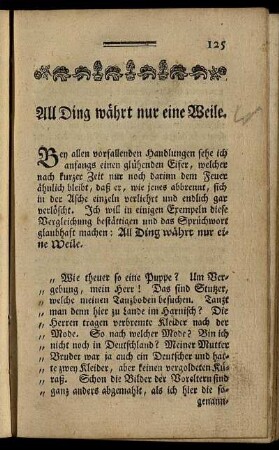 125
All Ding währt nur eine Weile.
Bey allen vorfallenden Handlungen sehe ich
anfangs einen glühenden Eifer, welcher
nach kurzer Zeit nur noch darinn dem Feuer
ähnlich bleibt, daß er, wie jenes abbrennt, sich
in der Asche einzeln verliehrt und endlich gar
verlöscht. Ich will in einigen Exempeln diese
Vergleichung bestättigen und das Sprüchwort
glaubhaft machen: All Ding währt nur ei-
ne Weile.
„ Wie theuer so eine Puppe? Um Ver-
„ gebung, mein Herr! Das sind Stutzer,
„ welche meinen Tanzboden besuchen. Tanzt
„ man denn hier zu Lande im Harnisch? Die
„ Herren tragen verbremte Kleider nach der
„ Mode. So nach welcher Mode? Bin ich
„ nicht noch in Deutschland? Meiner Mutter
„ Bruder war ja auch ein Deutscher und hat-
„ te zwey Kleider, aber keinen vergoldeten Kü-
„ raß. Schon die Bilder der Voreltern sind
„ ganz anders abgemahlt, als ich hier die so-
genann-